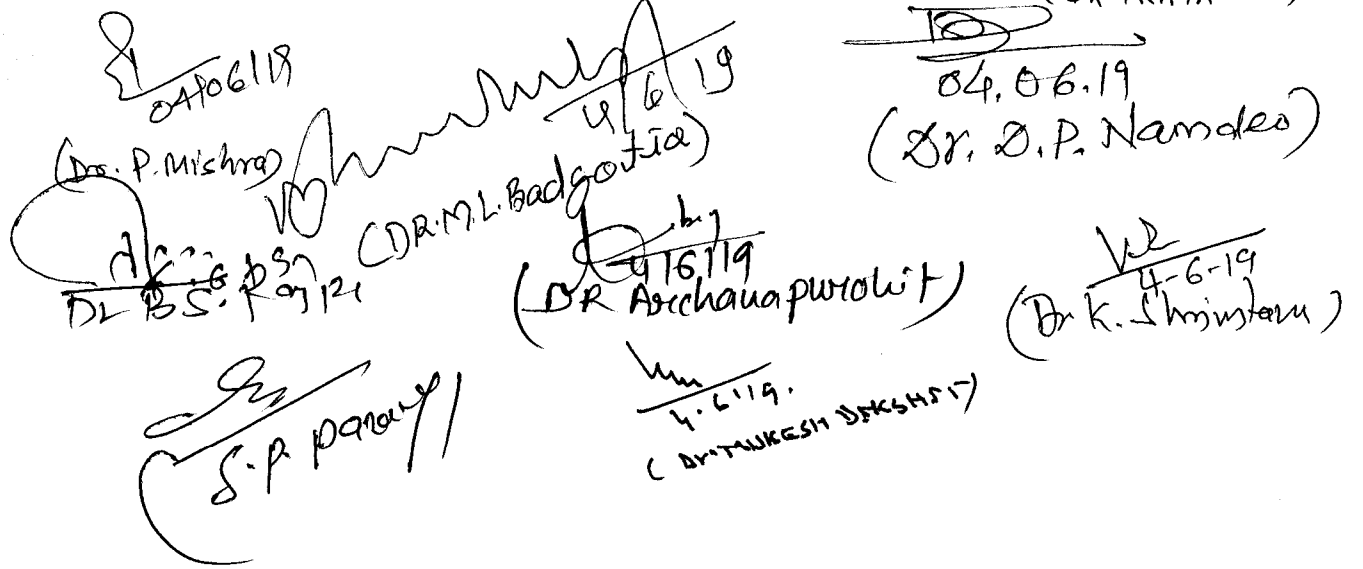 04/06/19
(Dr. P. Mishra)
4/6/19
(DR. M. L. Badgotia)
04.06.19
(Dr. D. P. Namdeo)
4/6/19
(DR Archana purohit)
4-6-19
(Dr K.
S. P.
4.6.19.
(Dr. MUKESH DIKSHIT)